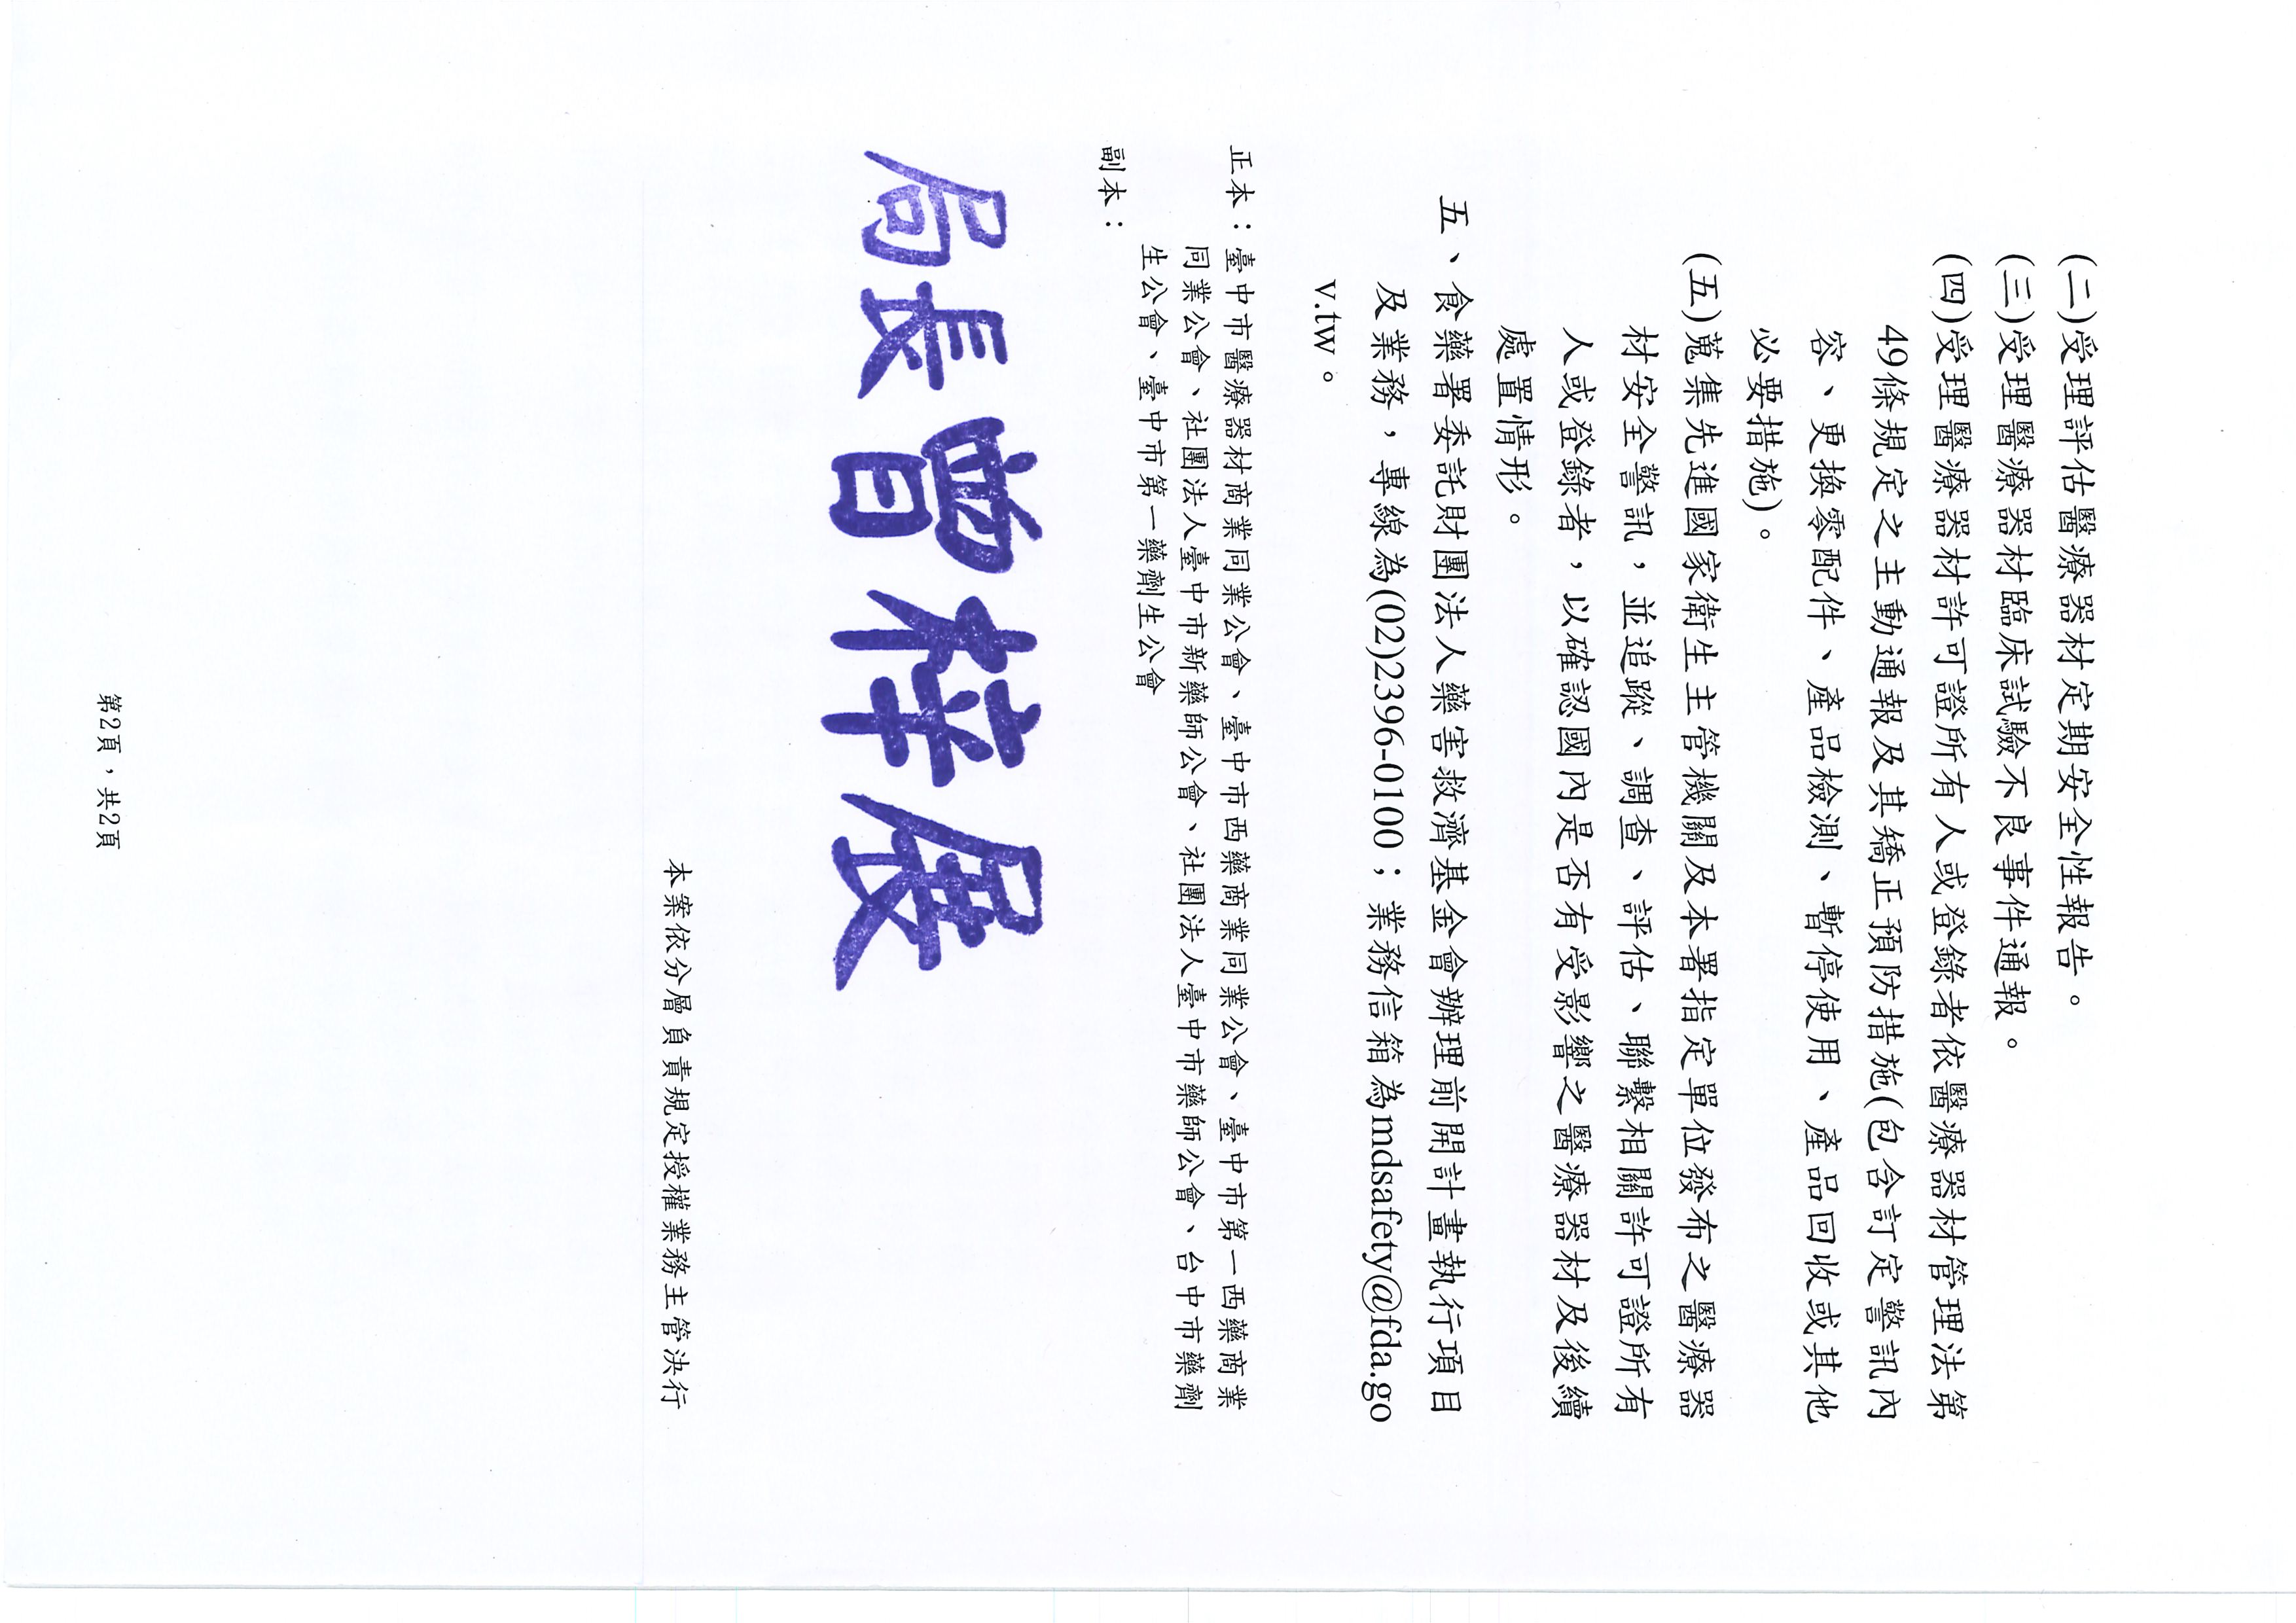 (二)受理評估醫療器材定期安全性報告。
(三)受理醫療器材臨床試驗不良事件通報。
(四)受理醫療器材許可證所有人或登錄者依醫療器材管理法第
49條規定之主動通報及其矯正預防措施(包含訂定警訊內
容、更換零配件、產品檢測、暫停使用、產品回收或其他
必要措施)。
(五)蒐集先進國家衛生主管機關及本署指定單位發布之醫療器
材安全警訊，並追蹤、調查、評估、聯繫相關許可證所有
人或登錄者，以確認國內是否有受影響之醫療器材及後續
處置情形。
五、食藥署委託財團法人藥害救濟基金會辦理前開計畫執行項目
及業務，專線為(02)2396-0100；業務信箱為mdsafety@fda.go
v.tw。
正本：臺中市醫療器材商業同業公會、臺中市西藥商業同業公會、臺中市第一西藥商業
同業公會、社團法人臺中市新藥師公會、社團法人臺中市藥師公會、台中市藥劑
生公會、臺中市第一藥劑生公會
副本：
局長曾梓展
本案依分層負責規定授權業務主管決行
第2頁，共2頁